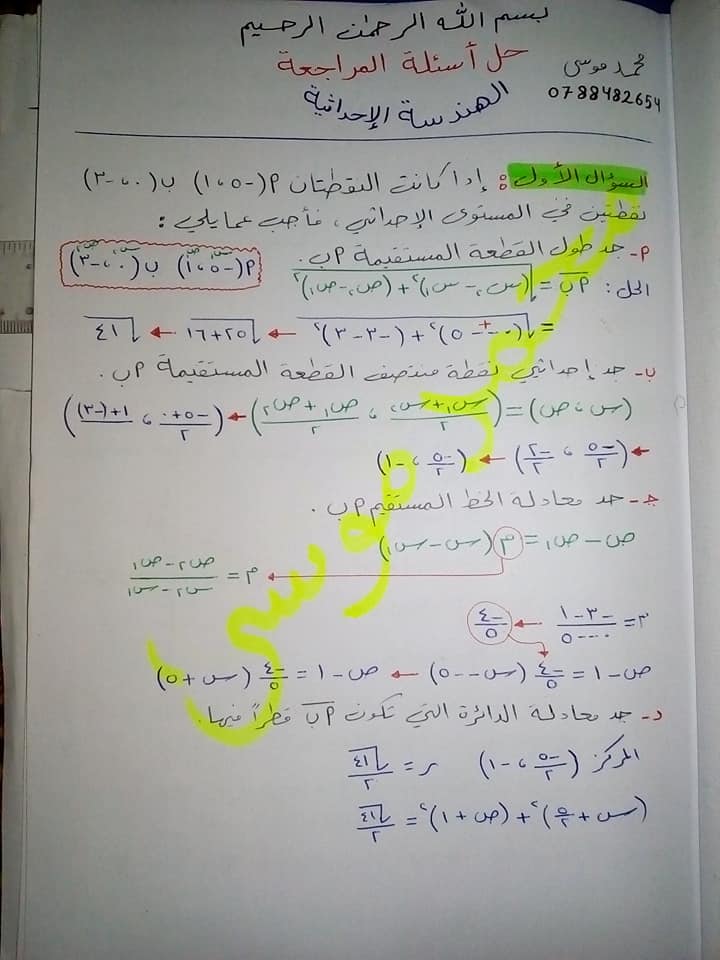 بسم الله الرحمن الرحيم
حل أسئلة المراجعة
محمد موسى
الهندسة الإحداثية
0788482654
السؤال الأول: إذا كانت النقطتان P(-٥، ١) ب(٠، -٣)
نقطتين في المستوى الإحداثي، فأجب عما يلي:
P- جد طول القطعة المستقيمة P ب.
P(-٥، ١) ب(٠، -٣)
الحل: P ب = √((س٢ - س١)² + (ص٢ - ص١)²)
= √((٠ - -٥)² + (-٣ - ٣)²) ← √(٢٥+١٦) ← √٤١
ب- جد إحداثيي نقطة منتصف القطعة المستقيمة P ب.
(س، ص) = ((س١ + س٢)/٢ ، (ص١ + ص٢)/٢) ← ((-٥+٠)/٢ ، (١+(-٣))/٢)
← (-٥/٢ ، -٢/٢) ← (-٥/٢ ، -١)
جـ- جد معادلة الخط المستقيم P ب.
ص - ص١ = م (س - س١)
م = (ص٢ - ص١)/(س٢ - س١)
م = (-٣ - ١)/(٠ - -٥) ← -٤/٥
ص - ١ = -٤/٥ (س - -٥) ← ص - ١ = -٤/٥ (س + ٥)
د- جد معادلة الدائرة التي تكون P ب قطراً فيها.
المركز (-٥/٢ ، -١) ر = √٤١/٢
(س + ٥/٢)² + (ص + ١)² = √٤١/٢
محمد موسى